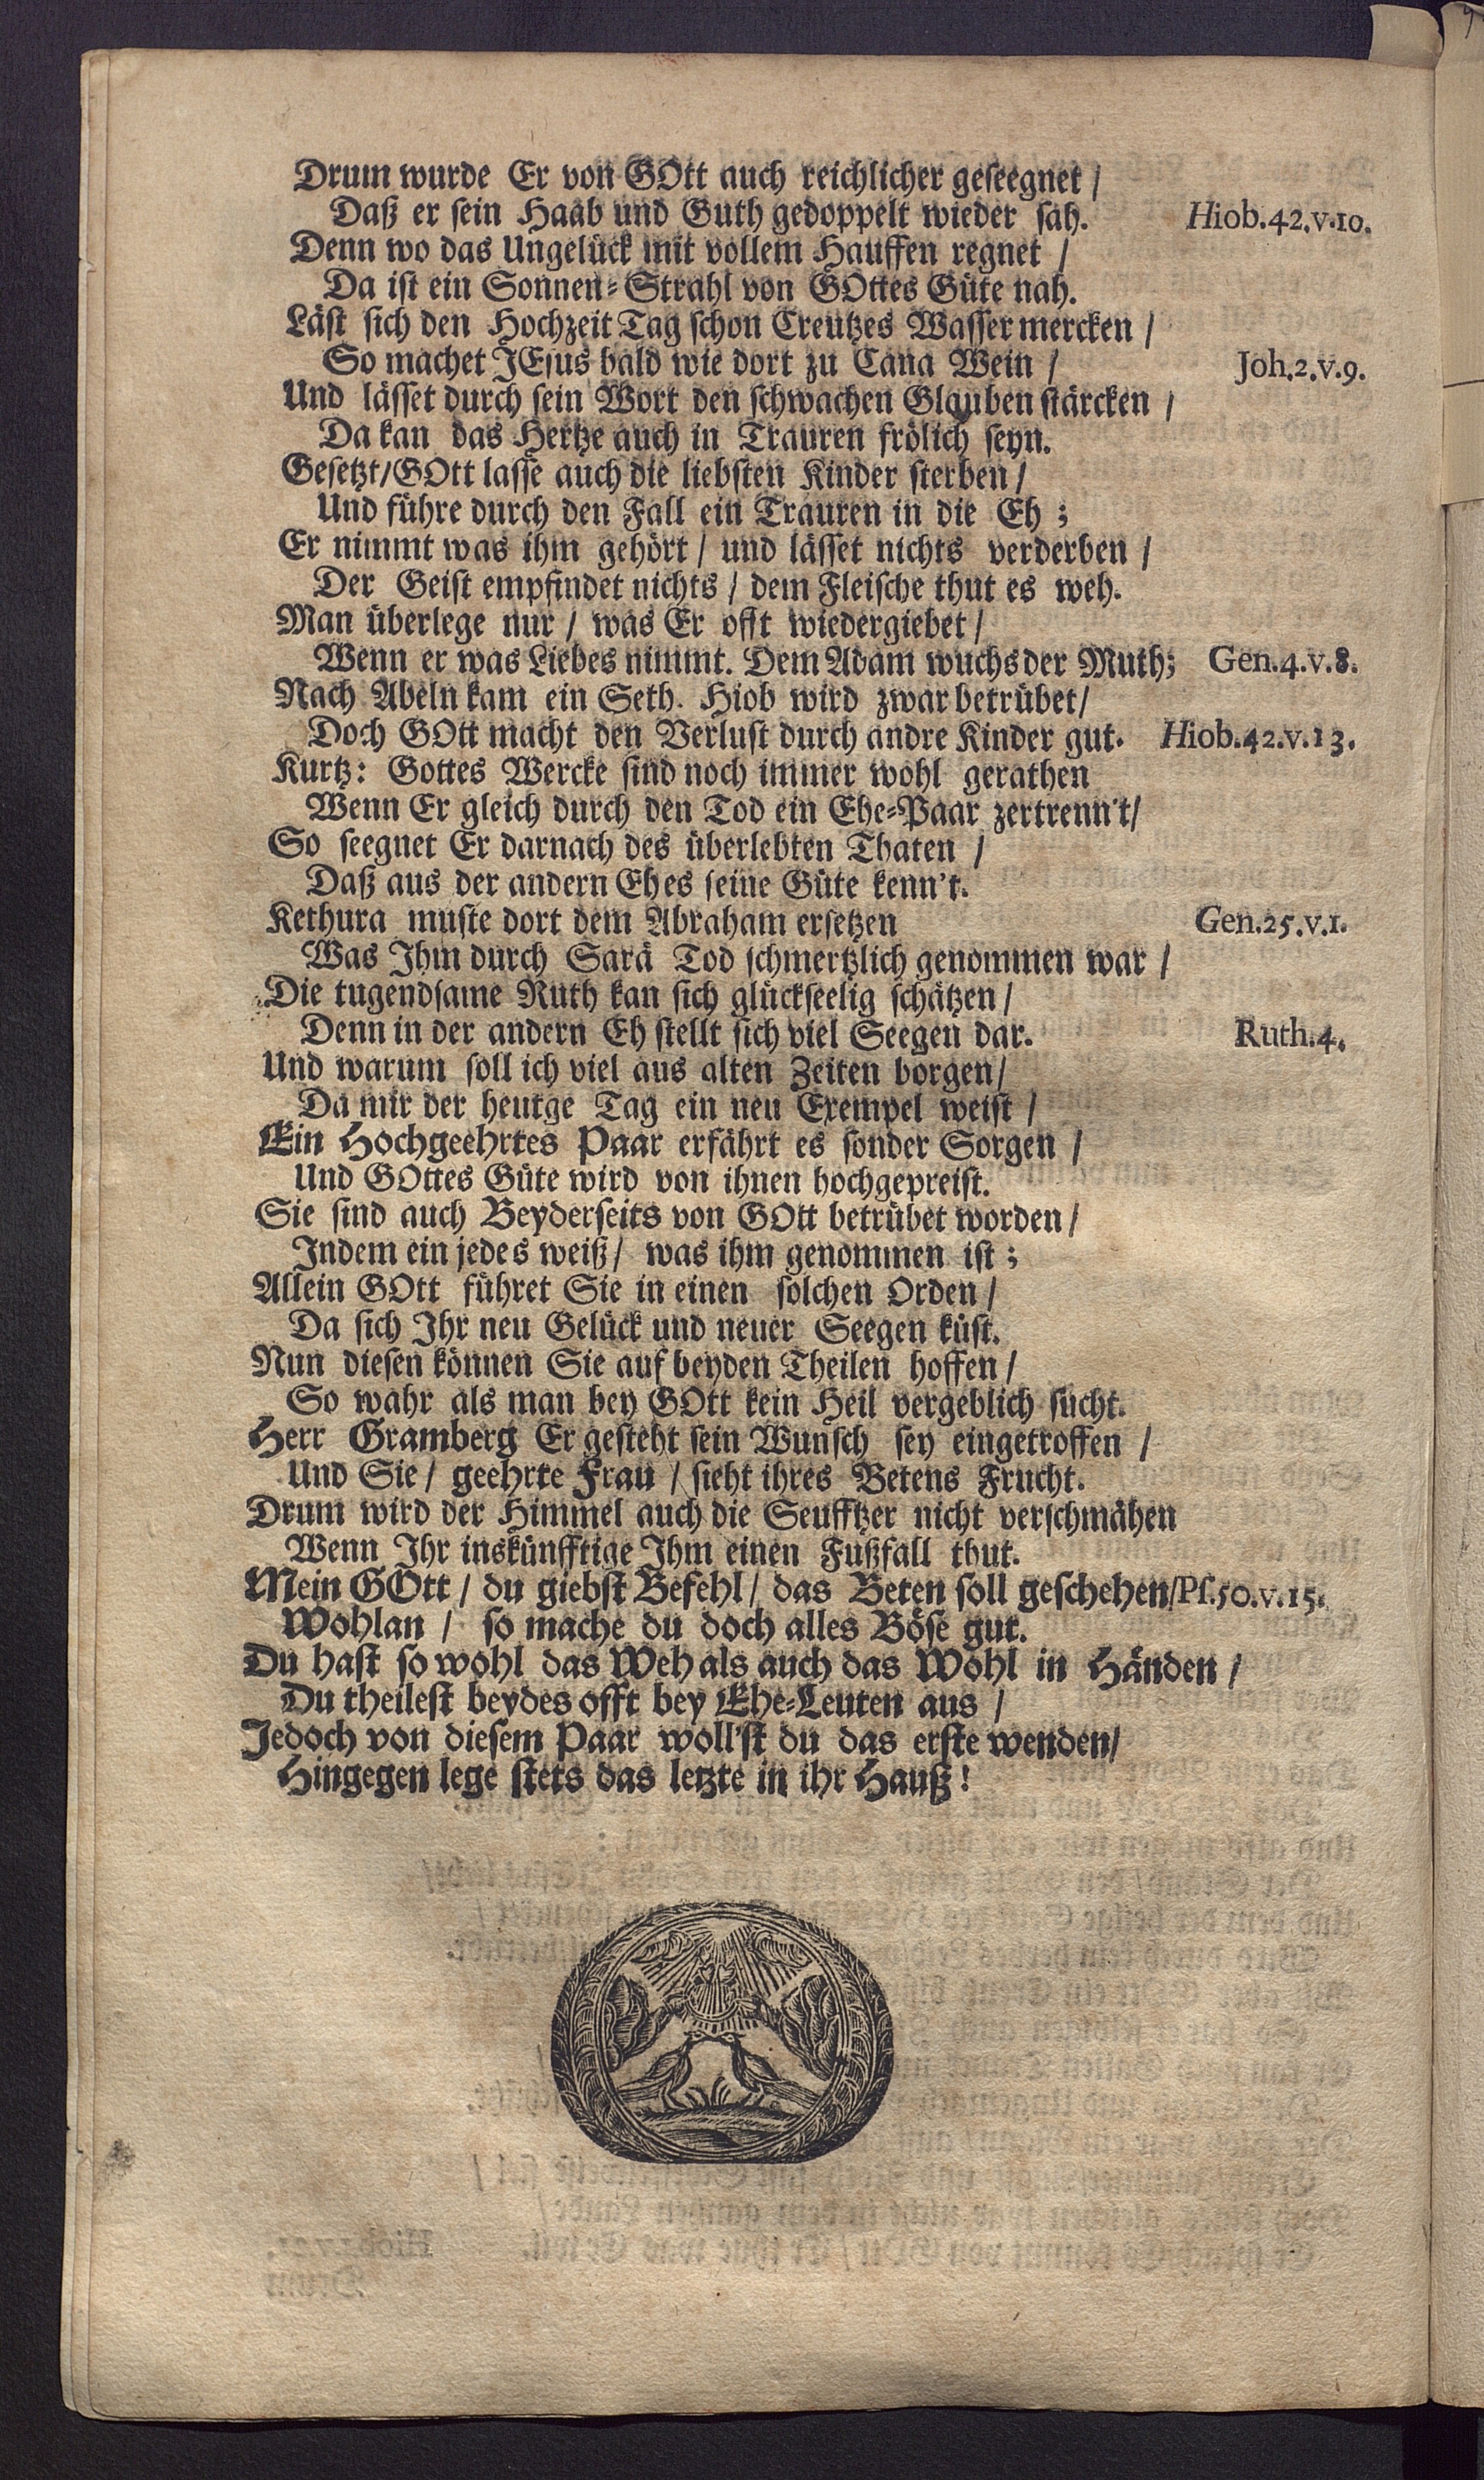 Drum wurde Er von GOtt auch reichlicher geseegnet /
Daß er sein Haab und Guth gedoppelt wieder sah. Hiob.42.v.10.
Denn wo das Ungelück mit vollem Hauffen regnet /
Da ist ein Sonnen-Strahl von GOttes Güte nah.
Läst sich den Hochzeit Tag schon Creutzes Wasser mercken /
So machet JEsus bald wie dort zu Cana Wein / Joh.2.v.9.
Und lässet durch sein Wort den schwachen Glauben stärcken /
Da kan das Hertze auch in Trauren frölich seyn.
Gesetzt/GOtt lasse auch die liebsten Kinder sterben /
Und führe durch den Fall ein Trauren in die Eh ;
Er nimmt was ihm gehört / und lässet nichts verderben /
Der Geist empfindet nichts / dem Fleische thut es weh.
Man überlege nur / was Er offt wiedergiebet /
Wenn er was Liebes nimmt. Dem Adam wuchs der Muth; Gen.4.v.8.
Nach Abeln kam ein Seth. Hiob wird zwar betrübet/
Doch GOtt macht den Verlust durch andre Kinder gut. Hiob.42.v.13.
Kurtz: Gottes Wercke sind noch immer wohl gerathen
Wenn Er gleich durch den Tod ein Ehe-Paar zertrenn't/
So seegnet Er darnach des überlebten Thaten /
Daß aus der andern Eh es seine Güte kenn't.
Kethura muste dort dem Abraham ersetzen Gen.25.v.1.
Was Ihm durch Sarä Tod schmertzlich genommen war /
Die tugendsame Ruth kan sich glückseelig schätzen /
Denn in der andern Eh stellt sich viel Seegen dar. Ruth.4.
Und warum soll ich viel aus alten Zeiten borgen/
Da mir der heutge Tag ein neu Exempel weist /
Ein Hochgeehrtes Paar erfährt es sonder Sorgen /
Und GOttes Güte wird von ihnen hochgepreist.
Sie sind auch Beyderseits von GOtt betrübet worden /
Indem ein jedes weiß / was ihm genommen ist ;
Allein GOtt führet Sie in einen solchen Orden /
Da sich Ihr neu Gelück und neuer Seegen küst.
Nun diesen können Sie auf beyden Theilen hoffen /
So wahr als man bey GOtt kein Heil vergeblich sucht.
Herr Gramberg Er gesteht sein Wunsch sey eingetroffen /
Und Sie / geehrte Frau / sieht ihres Betens Frucht.
Drum wird der Himmel auch die Seufftzer nicht verschmähen
Wenn Ihr inskünfftige Ihm einen Fußfall thut.
Mein GOtt / du giebst Befehl / das Beten soll geschehen/Ps.50.v.15.
Wohlan / so mache du doch alles Böse gut.
Du hast so wohl das Weh als auch das Wohl in Händen /
Du theilest beydes offt bey Ehe-Leuten aus /
Jedoch von diesem Paar woll'st du das erste wenden/
Hingegen lege stets das letzte in ihr Hauß !